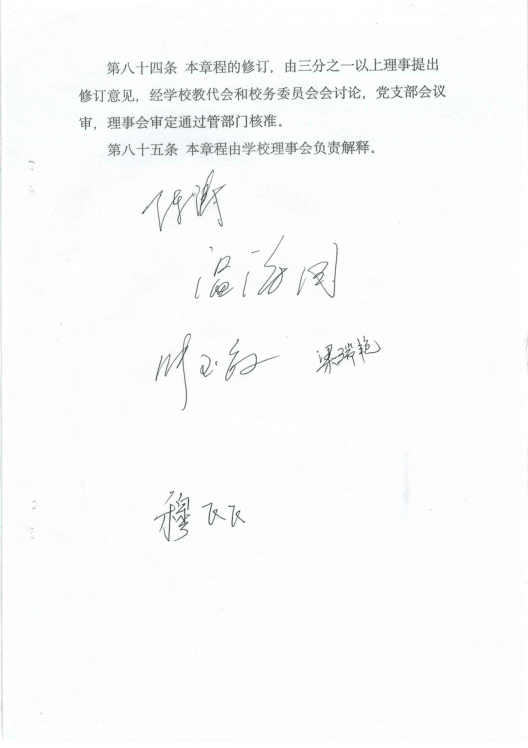 第八十四条 本章程的修订，由三分之一以上理事提出
修订意见，经学校教代会和校务委员会会讨论，党支部会议
审，理事会审定通过管部门核准。
第八十五条 本章程由学校理事会负责解释。
梁瑞艳
穆飞飞